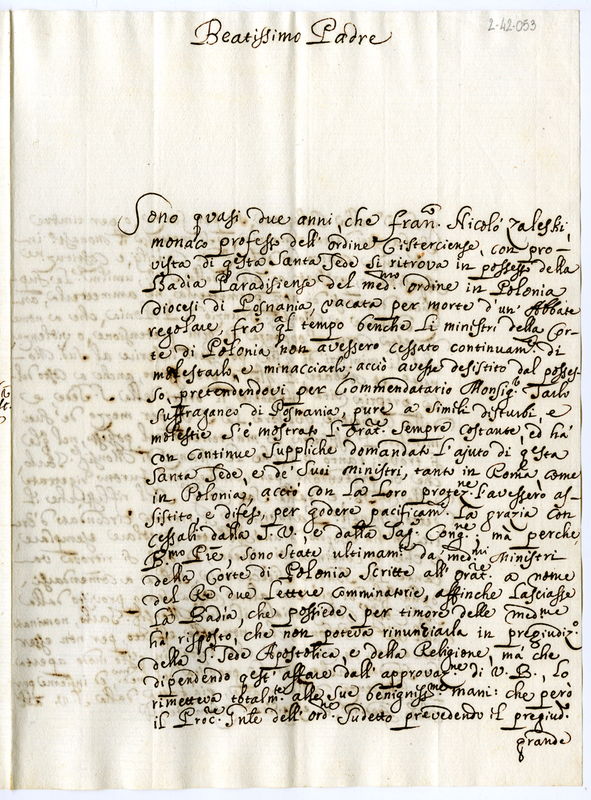 2-42-053
Beatissimo Padre
Sono quasi due anni, che fran. Nicolò Zaleski,
monaco professo dell' ordine Cisterciense, con pro-
vista di qesta Santa Sede si ritrova in possesso della
Badia Paradisiense del med.mo ordine in Polonia
diocesi di Posnania, vacata per morte d'un' Abbate
regolare, frà ql tempo benche li ministri della Cor-
te di Polonia non avessero cessato continuam. di
molestarlo, e minacciarlo, acciò avesse desistito dal posses-
so, pretendendovi per Commendatario Monsig.r
Suffraganeo di Posnania, pure a simili disturbi, e
molestie s'è mostrato l'Orat.e sempre costante, ed hà
con continue suppliche domandato l'ajuto di qesta
Santa Sede, e de' suoi Ministri, tanto in Roma, come
in Polonia, acciò con la loro protez.ne l'avessero as-
sistito, e difeso, per godere pacificam. la grazia con
cessali dalla S. V., e dalla Sag. Cong.ne, mà perche,
B.mo Pre, sono state ultimam. da med.mi Ministri
della Corte di Polonia scritte all' orat.e a nome
del Re due lettere comminatorie, affinche lasciasse
la Badia, che possiede, per timore delle med.me
hà risposto, che non poteva rinunziarla in pregiudiz.o
della S. Sede Apostolica, e della Religione, mà che
dipendendo qest' affare dall' approvaz.ne di V. B., lo
rimetteva totalm.te alle sue benigniss.me mani: che però
il Proc.re Gnle dell' ord.e sudetto prevedendo il pregiud.o
grande